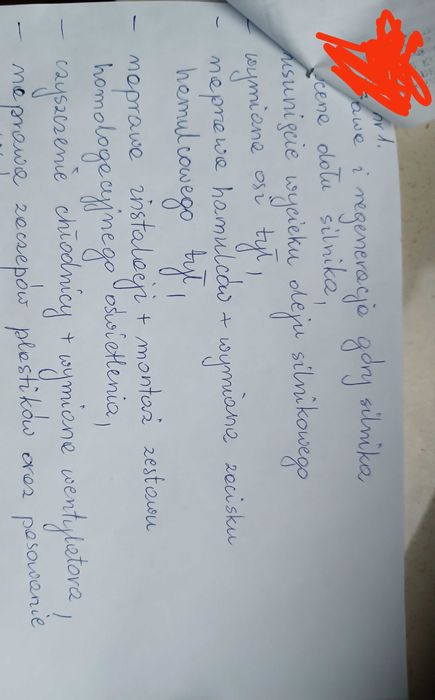 nr 1.
i regeneracja góry silnika
dołu silnika,
usunięcie wycieku oleju silnikowego
- wymiana osi tył,
- naprawa hamulców + wymiana zacisku
hamulcowego tył,
- naprawa instalacji + montaż zestawu
homologacyjnego oświetlenia,
- czyszczenie chłodnicy + wymiana wentylatora,
- naprawa zaczepów plastików oraz pasowanie